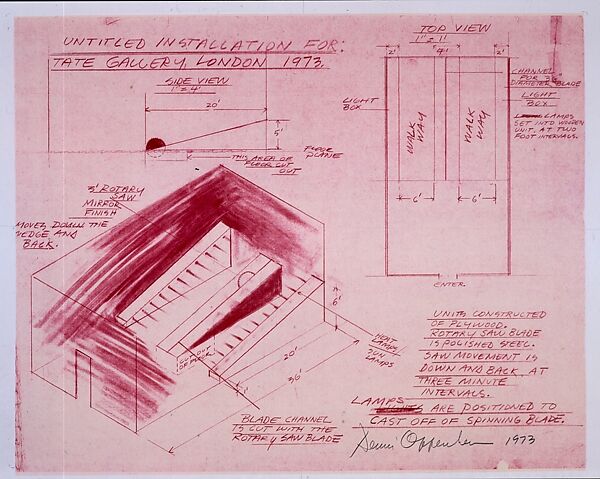 UNTITLED INSTALLATION FOR:
TATE GALLERY, LONDON 1973.
SIDE VIEW
1"=4'
20'
5'
FLOOR
PLANE
THIS AREA OF
FLOOR CUT
OUT
TOP VIEW
1"=1'
2'
4'
2'
LIGHT
BOX
WALK
WAY
WALK
WAY
CHANNEL
FOR 3'
DIAMETER BLADE
LIGHT
BOX
LAMPS
SET INTO WOODEN
UNIT, AT TWO
FOOT INTERVALS.
6'
6'
ENTER
3' ROTARY
SAW
MIRROR
FINISH
MOVES DOWN THE
WEDGE AND
BACK.
CUT OUT
OF FLOOR
6'
20'
36'
HEAT
LAMPS/
SUN
LAMPS
BLADE CHANNEL
IS CUT WITH THE
ROTARY SAW BLADE
UNITS CONSTRUCTED
OF PLYWOOD.
ROTARY SAW BLADE
IS POLISHED STEEL.
SAW MOVEMENT IS
DOWN AND BACK AT
THREE MINUTE
INTERVALS.
LAMPS
ARE POSITIONED TO
CAST OFF OF SPINNING BLADE.
Dennis Oppenheim 1973